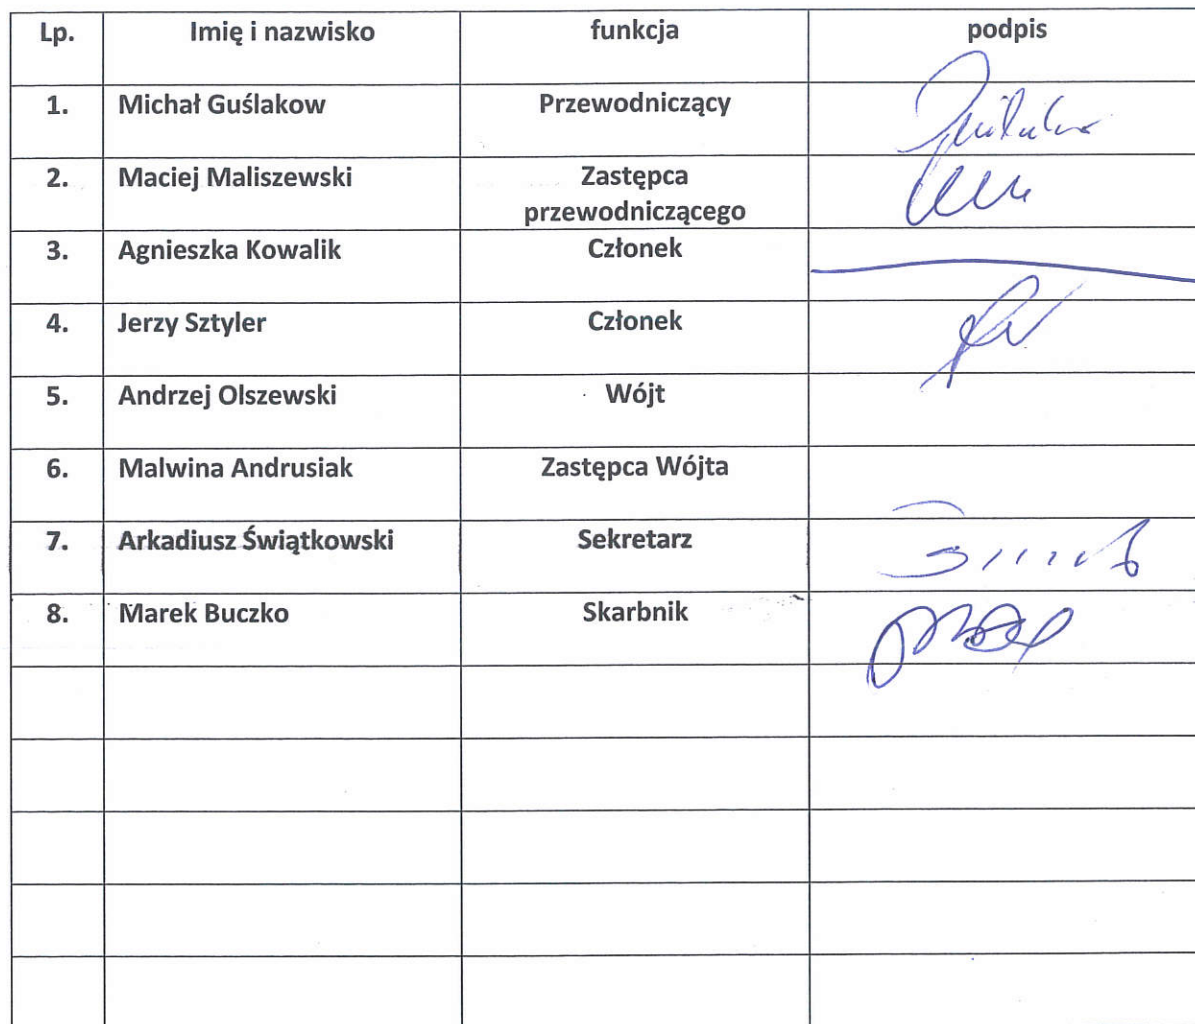 Lp. Imię i nazwisko funkcja podpis
1. Michał Guślakow Przewodniczący
2. Maciej Maliszewski Zastępca
przewodniczącego
3. Agnieszka Kowalik Członek
4. Jerzy Sztyler Członek
5. Andrzej Olszewski Wójt
6. Malwina Andrusiak Zastępca Wójta
7. Arkadiusz Świątkowski Sekretarz
8. Marek Buczko Skarbnik